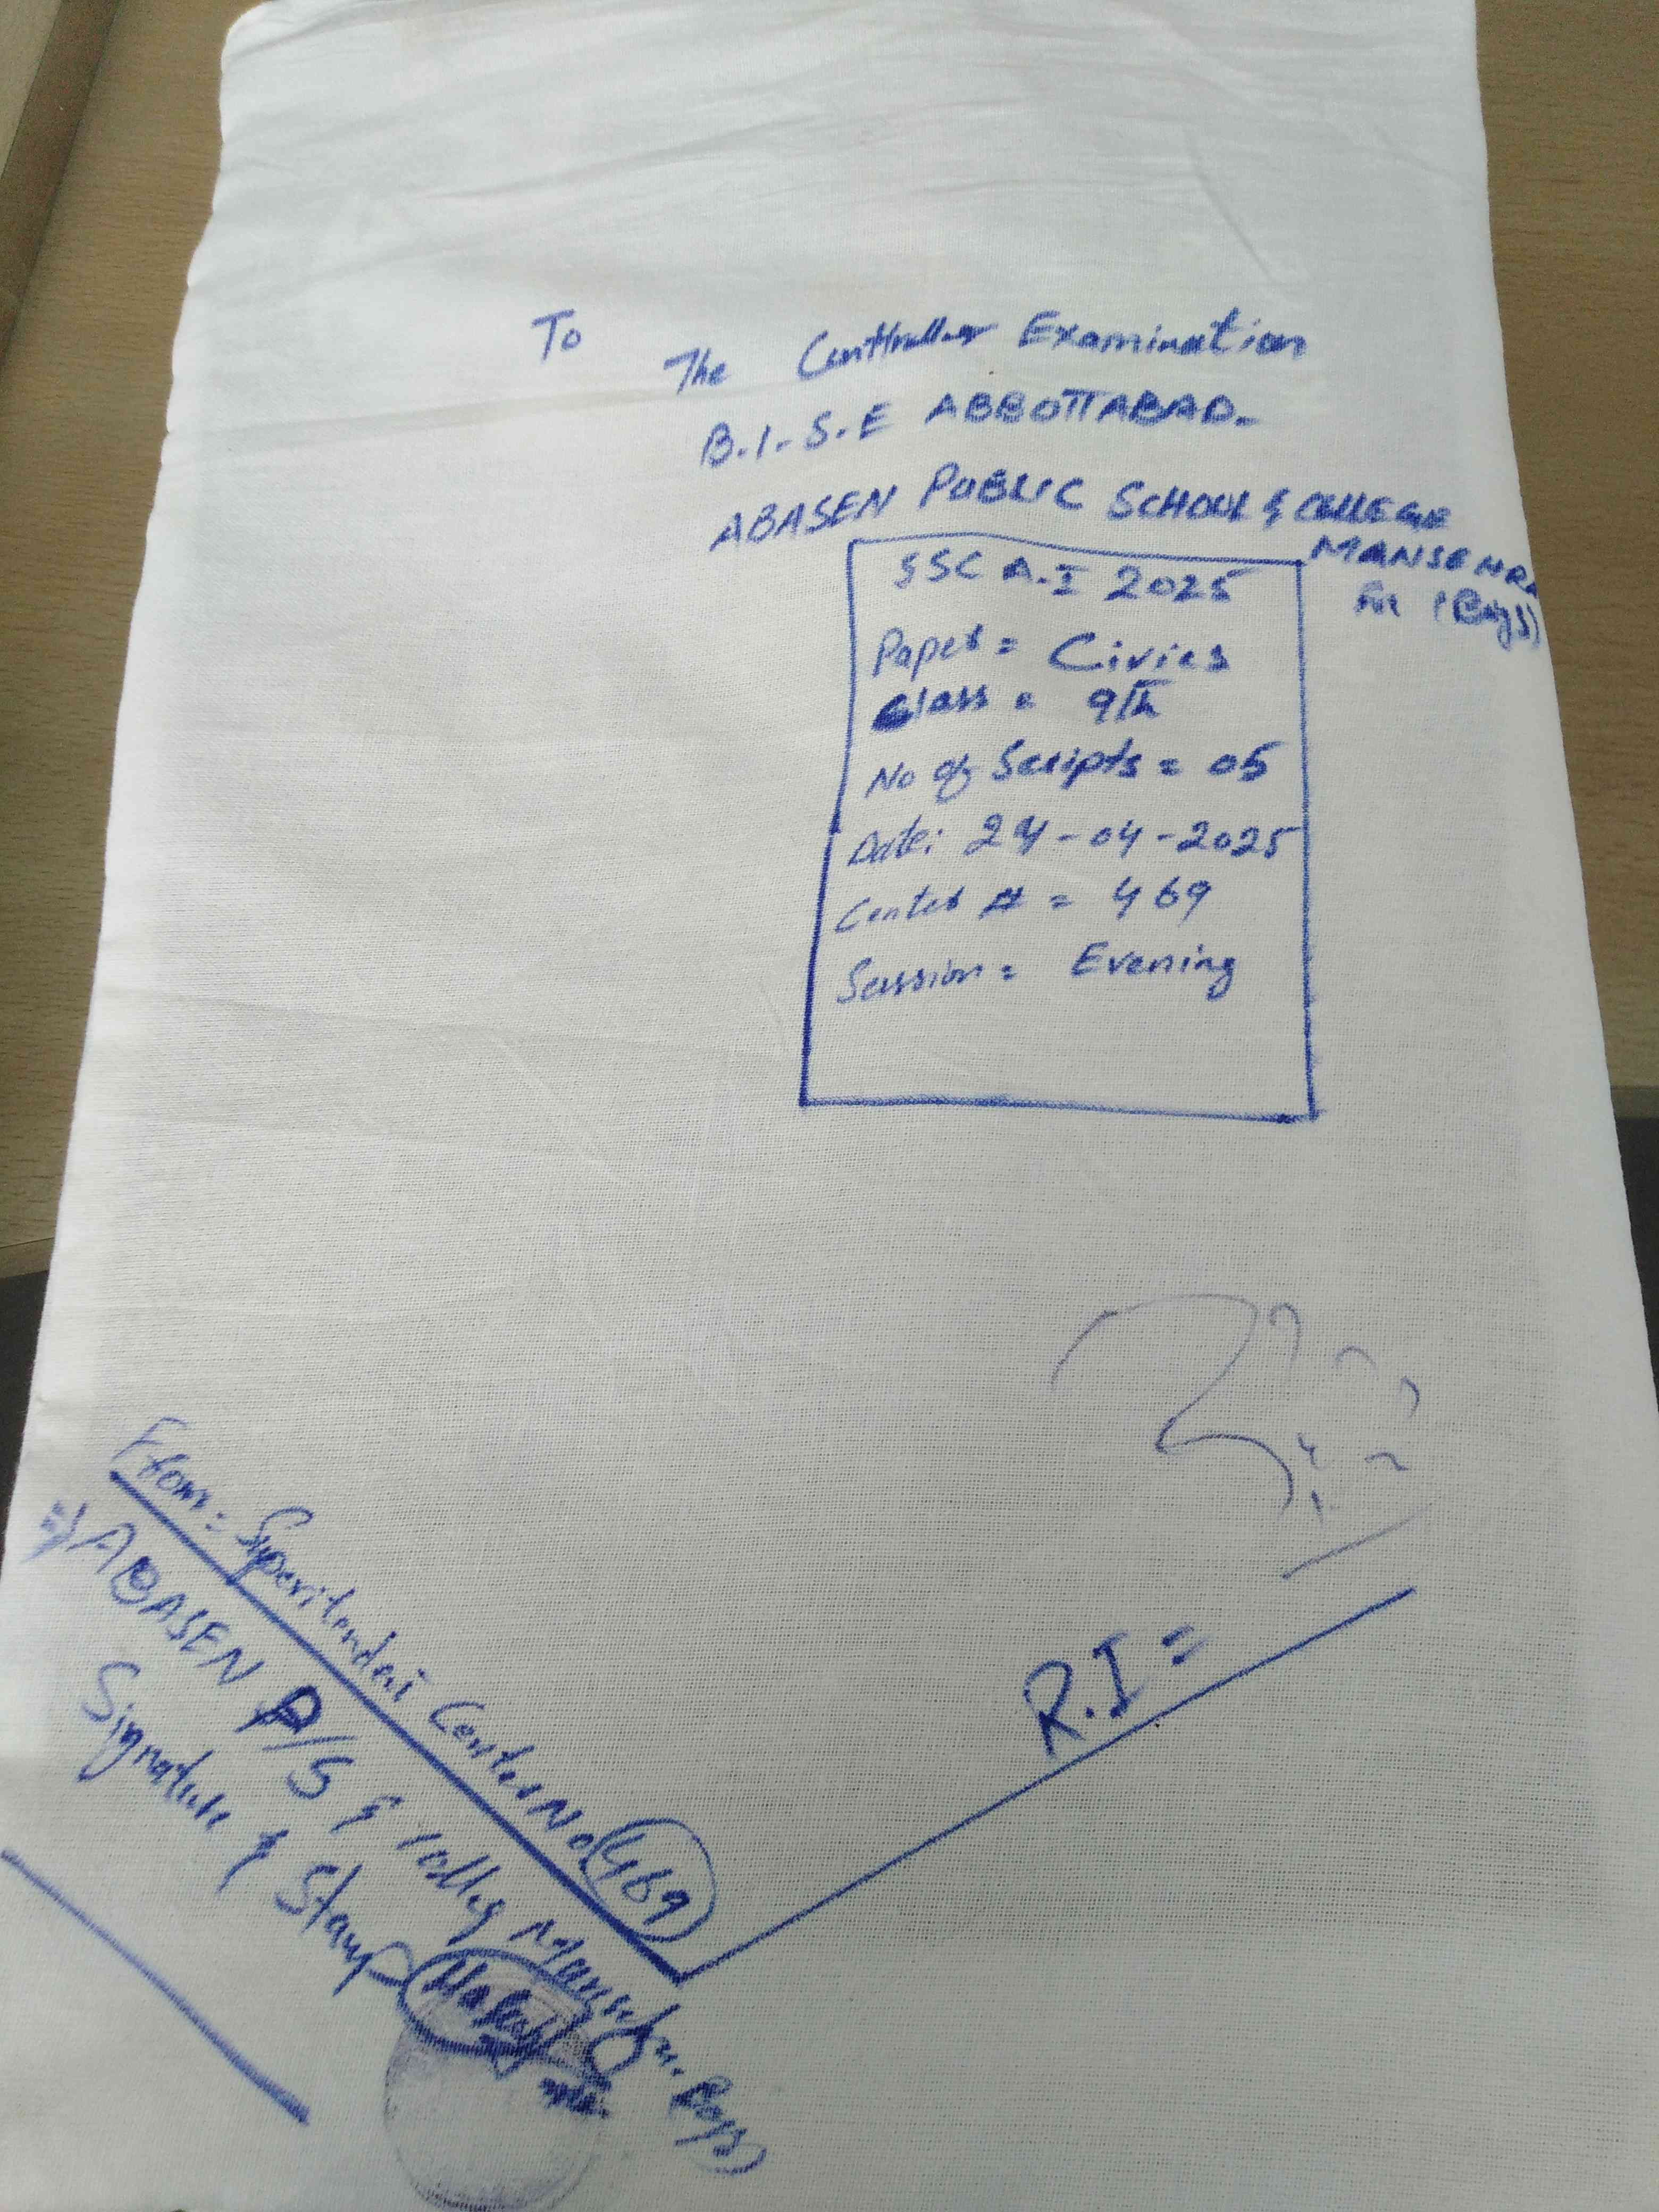 To
The Conttroller Examination
B.I.S.E ABBOTTABAD.
ABASEN PUBLIC SCHOOL & COLLEGE
MANSEHRA
For (Boys)
SSC A.I 2025
Paper = Civics
Class = 9th
No of Scripts = 05
Date: 24-04-2025
Center # = 469
Session = Evening
R.I =
From = Superitendent Center No 469
⇒ ABASEN P/S & Colleg Mansehra. Boys)
Signature & Stamp